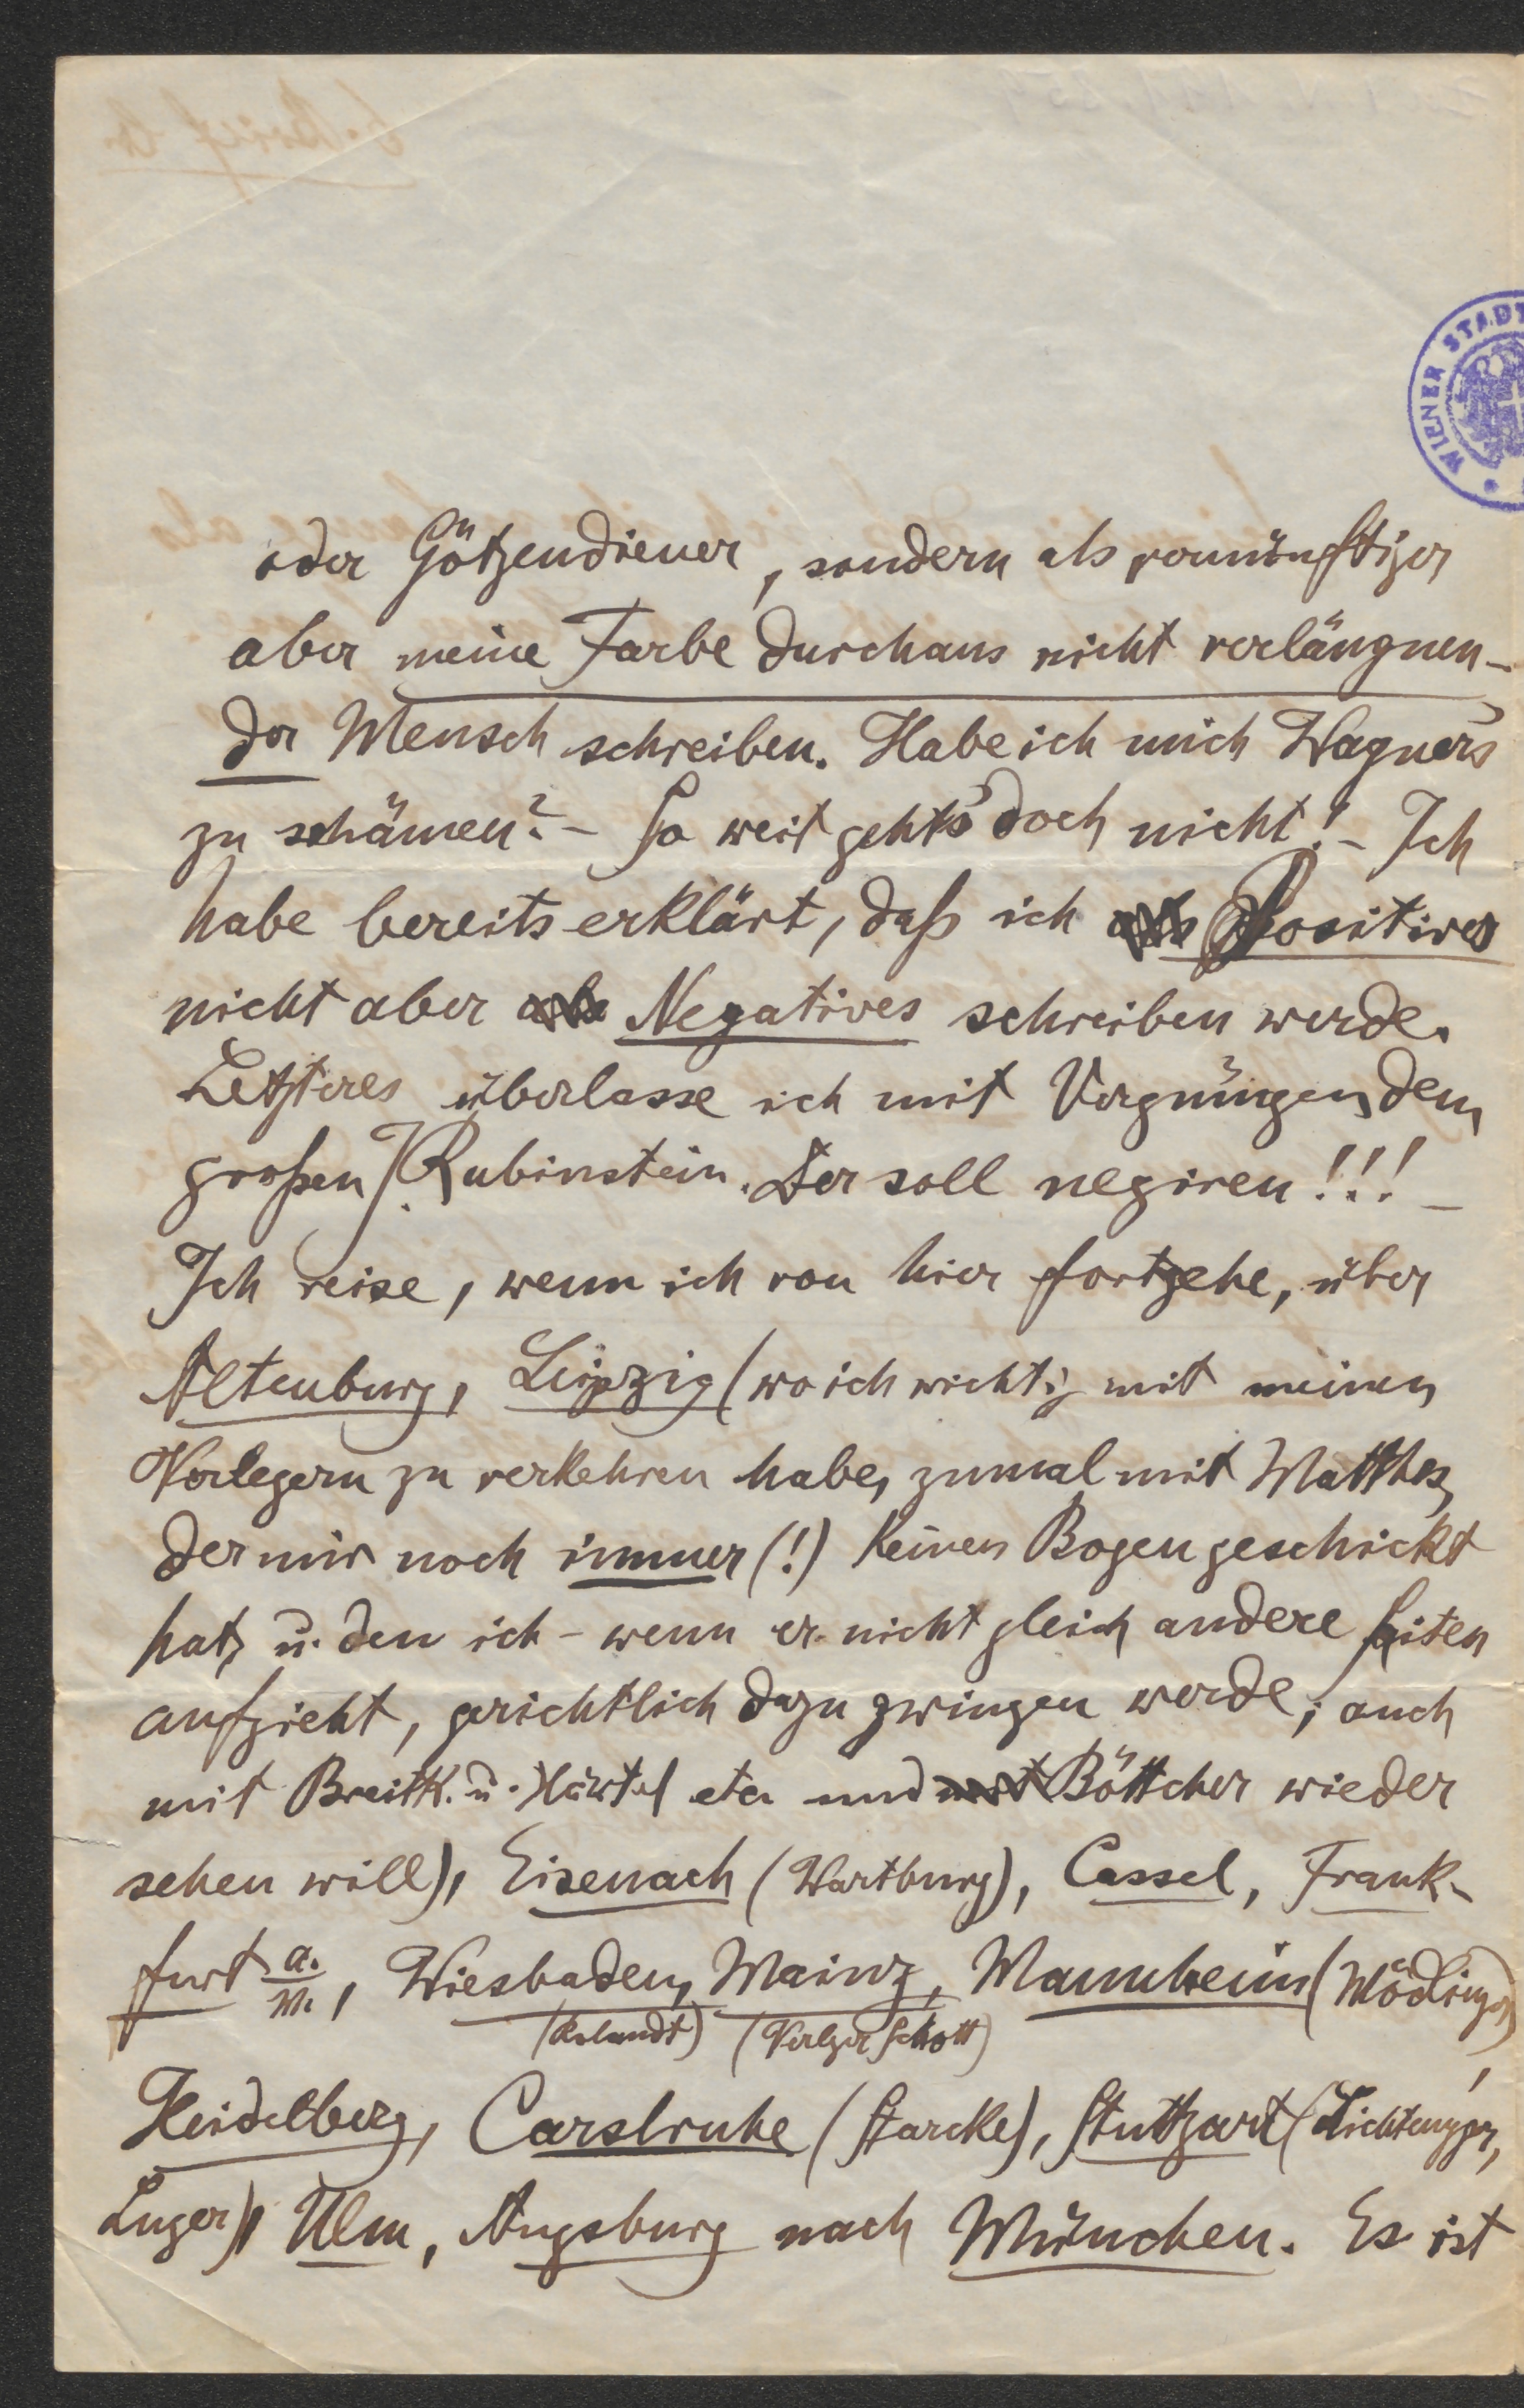 WIENER STADT
oder Götzendiener, sondern als vernünftiger
aber meine Farbe durchaus nicht verläugnen-
der Mensch schreiben. Habe ich mich Wagner's
zu schämen? – So weit geht's doch nicht! – Ich
habe bereits erklärt, daß ich als Positives
nicht aber als Negatives schreiben werde.
Letzteres überlasse ich mit Vergnügen dem
großen J. Rubinstein. Der soll negiren!!! –
Ich reise, wenn ich von hier fortgehe, über
Altenburg, Leipzig (wo ich wichtig mit meinen
Verlegern zu verkehren habe, zumal mit Matthes,
der mir noch immer (!) keinen Bogen geschickt
hat, u. den ich – wenn er nicht gleich andere Saiten
aufzieht, gerichtlich dazu zwingen werde; auch
mit Breitk. u. Härtel etc und mit Böttcher wieder
sehen will), Eisenach (Wartburg), Cassel, Frank-
furt a. M., Wiesbaden, Mainz, Mannheim (Mödlinger)
(Verleger Schott)
Heidelberg, Carslruhe (Starcke), Stuttgart (
Luger), Ulm, Augsburg nach München. Es ist